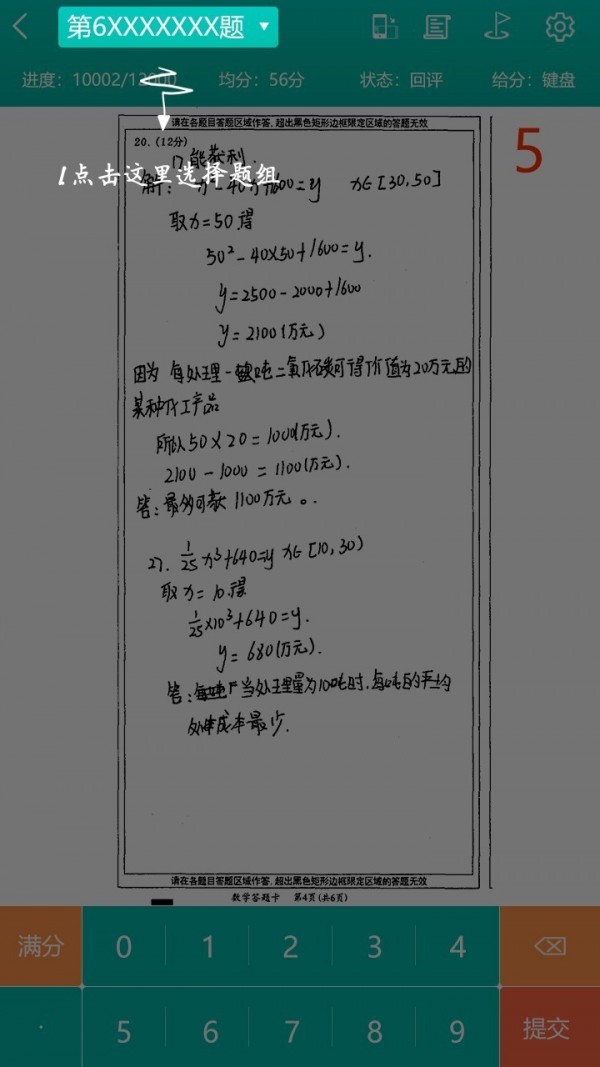 第6XXXXXXX题
进度: 10002/12000 均分: 56分 状态: 回评 给分: 键盘
请在各题目答题区域作答,超出黑色矩形边框限定区域的答题无效
20.(12分)
5
1) 能获利.
1点击这里选择题组
解: x² - 40x + 1600 = y x∈[30,50]
取x=50得
50² - 40×50 + 1600 = y.
y = 2500 - 2000 + 1600
y = 2100(万元)
因为 每处理一吨二氧化碳可得价值为20万元的
某种化工产品
所以 50×20 = 1000(万元).
2100 - 1000 = 1100(万元).
答: 最多可获 1100万元。
2). 1/25 x³ + 640 = y x∈[10,30)
取x=10得
1/25 × 10³ + 640 = y.
y = 680(万元).
答: 当处理量为10吨时,每吨的平均
处理成本最少.
请在各题目答题区域作答,超出黑色矩形边框限定区域的答题无效
数学答题卡 第4页(共6页)
满分 0 1 2 3 4
· 5 6 7 8 9 提交